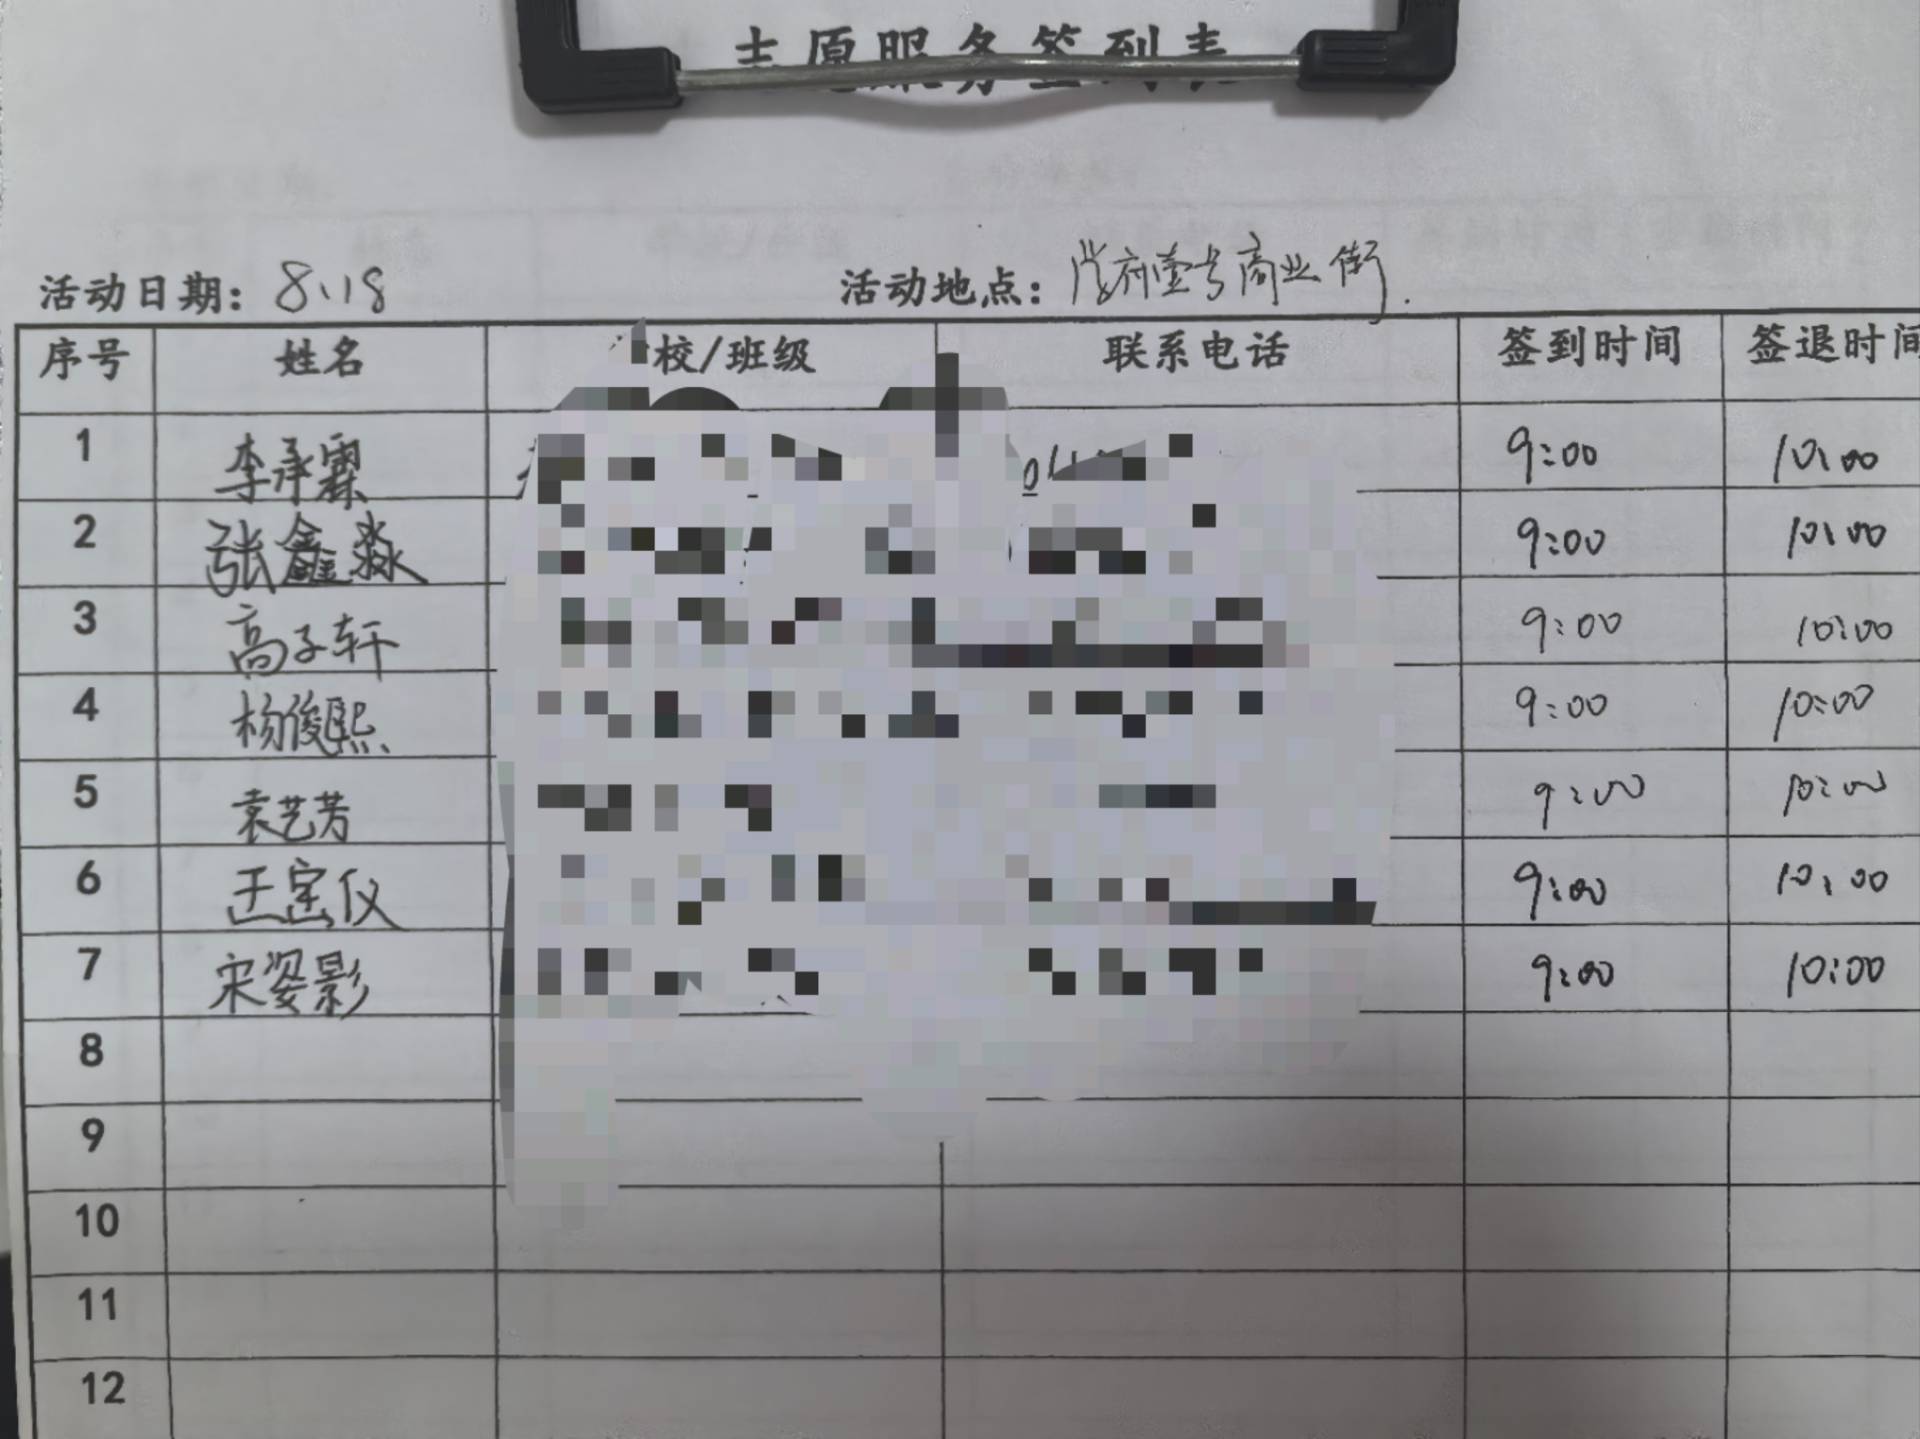 志愿服务签到表
活动日期：8.18 活动地点：府壹号商业街.
序号 姓名 校/班级 联系电话 签到时间 签退时间
1 李承霖 9:00 10:00
2 张鑫淼 9:00 10:00
3 高子轩 9:00 10:00
4 杨俊熙 9:00 10:00
5 袁艺芳 9:00 10:00
6 王宝仪 9:00 10:00
7 宋姿影 9:00 10:00
8
9
10
11
12